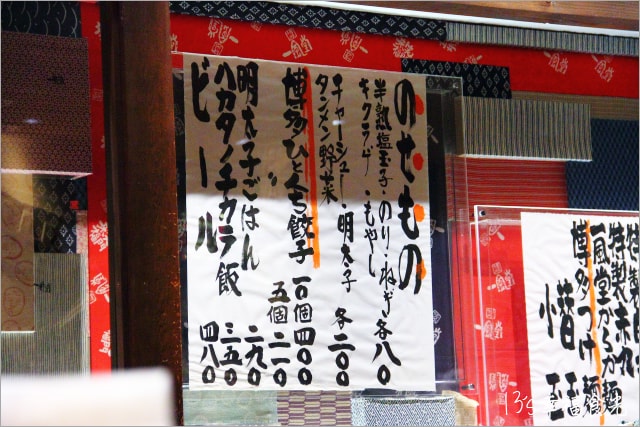 のせもの
半熟塩玉子・のり・ねぎ 各八〇
キクラゲ・もやし
チャーシュー・明太子 各二〇〇
タンメン野菜
博多ひとくち餃子 一〇個四〇〇
五個二一〇
明太子ごはん 二九〇
ハカタノチカラ飯 三五〇
ビール 四八〇
特製赤丸
一風堂からか麺
博多つけ麺